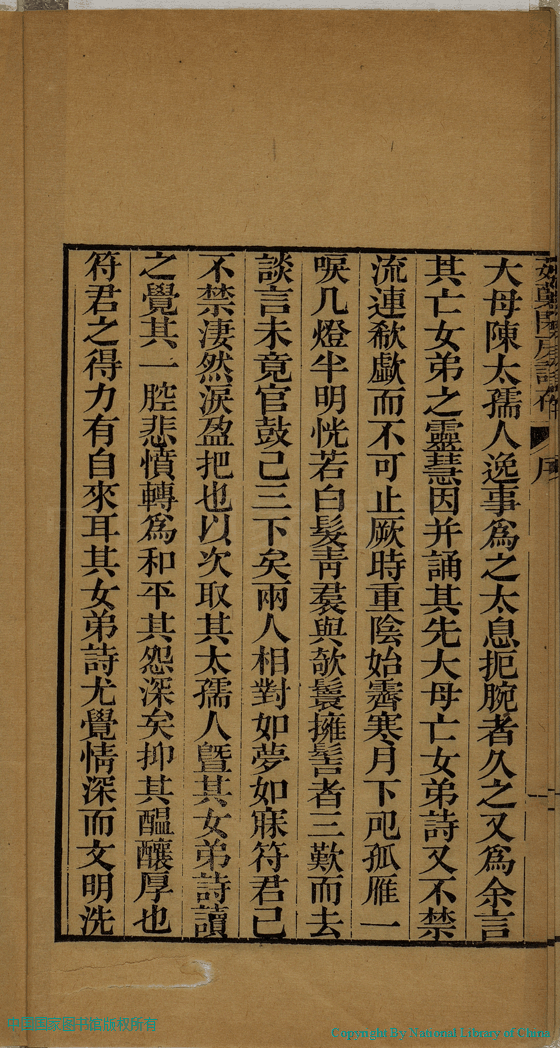 大母陳太孺人逸事爲之太息扼腕者久之又爲余言
其亡女弟之靈慧因并誦其先大母亡女弟詩又不禁
流連欷歔而不可止厥時重陰始霽寒月下咫孤雁一
唳几燈半明恍若白髮靑裠與欹鬟擁髻者三歎而去
談言未竟官鼓已三下矣兩人相對如夢如寐符君已
不禁淒然淚盈把也以次取其太孺人曁其女弟詩讀
之覺其一腔悲憤轉爲和平其怨深矣抑其醞釀厚也
符君之得力有自來耳其女弟詩尤覺情深而文明洗
序
中国国家图书馆版权所有
Copyright By National Library of China